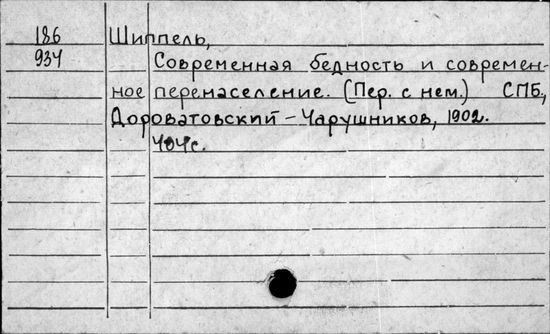 186 Шиппель,
934 Современная бедность и современ-
ное перенаселение. (Пер. с нем.) СПБ,
Дороватовский-Чарушников, 1902.
404с.